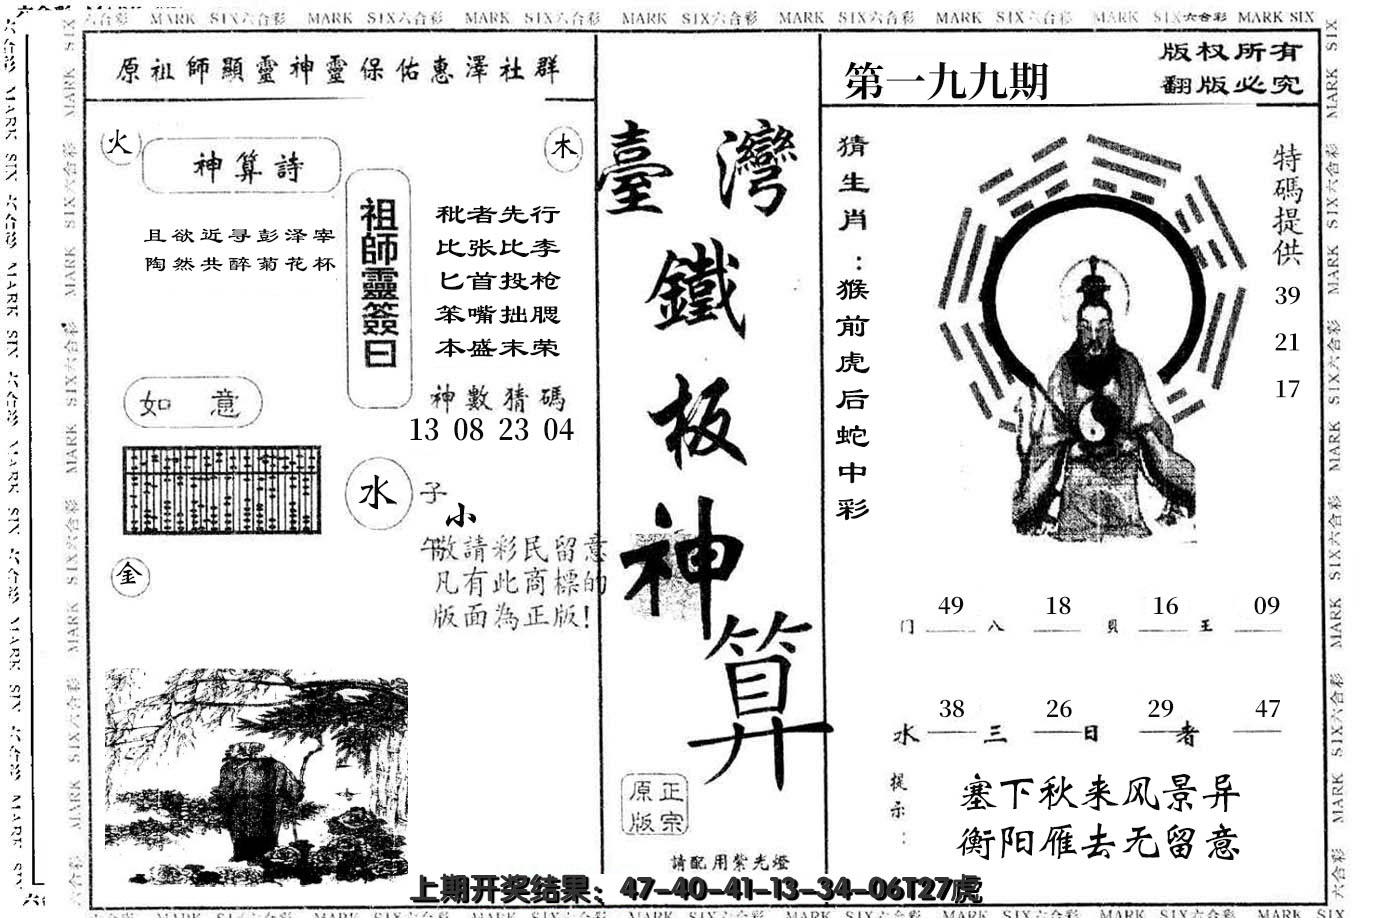 MARK SIX六合彩 MARK SIX六合彩 MARK SIX六合彩 MARK SIX六合彩 MARK SIX六合彩 MARK SIX六合彩 MARK SIX六合彩 MARK SIX
原祖師顯靈神靈保佑惠澤社群
火
神算詩
木
且欲近寻彭泽宰
陶然共醉菊花杯
祖師靈簽曰
秕者先行
比张比李
匕首投枪
笨嘴拙腮
本盛末荣
如意
神數猜碼
13 08 23 04
水
子
小
午
敬請彩民留意
凡有此商標的
版面為正版!
金
臺灣
鐵
板
神
算
正宗
原版
請配用紫光燈
第一九九期
版权所有
翻版必究
猜生肖:猴前虎后蛇中彩
特碼提供
39
21
17
49 18 16 09
门 八 貝 王
38 26 29 47
水 三 日 者
提示:
塞下秋来风景异
衡阳雁去无留意
上期开奖结果：47-40-41-13-34-06T27虎